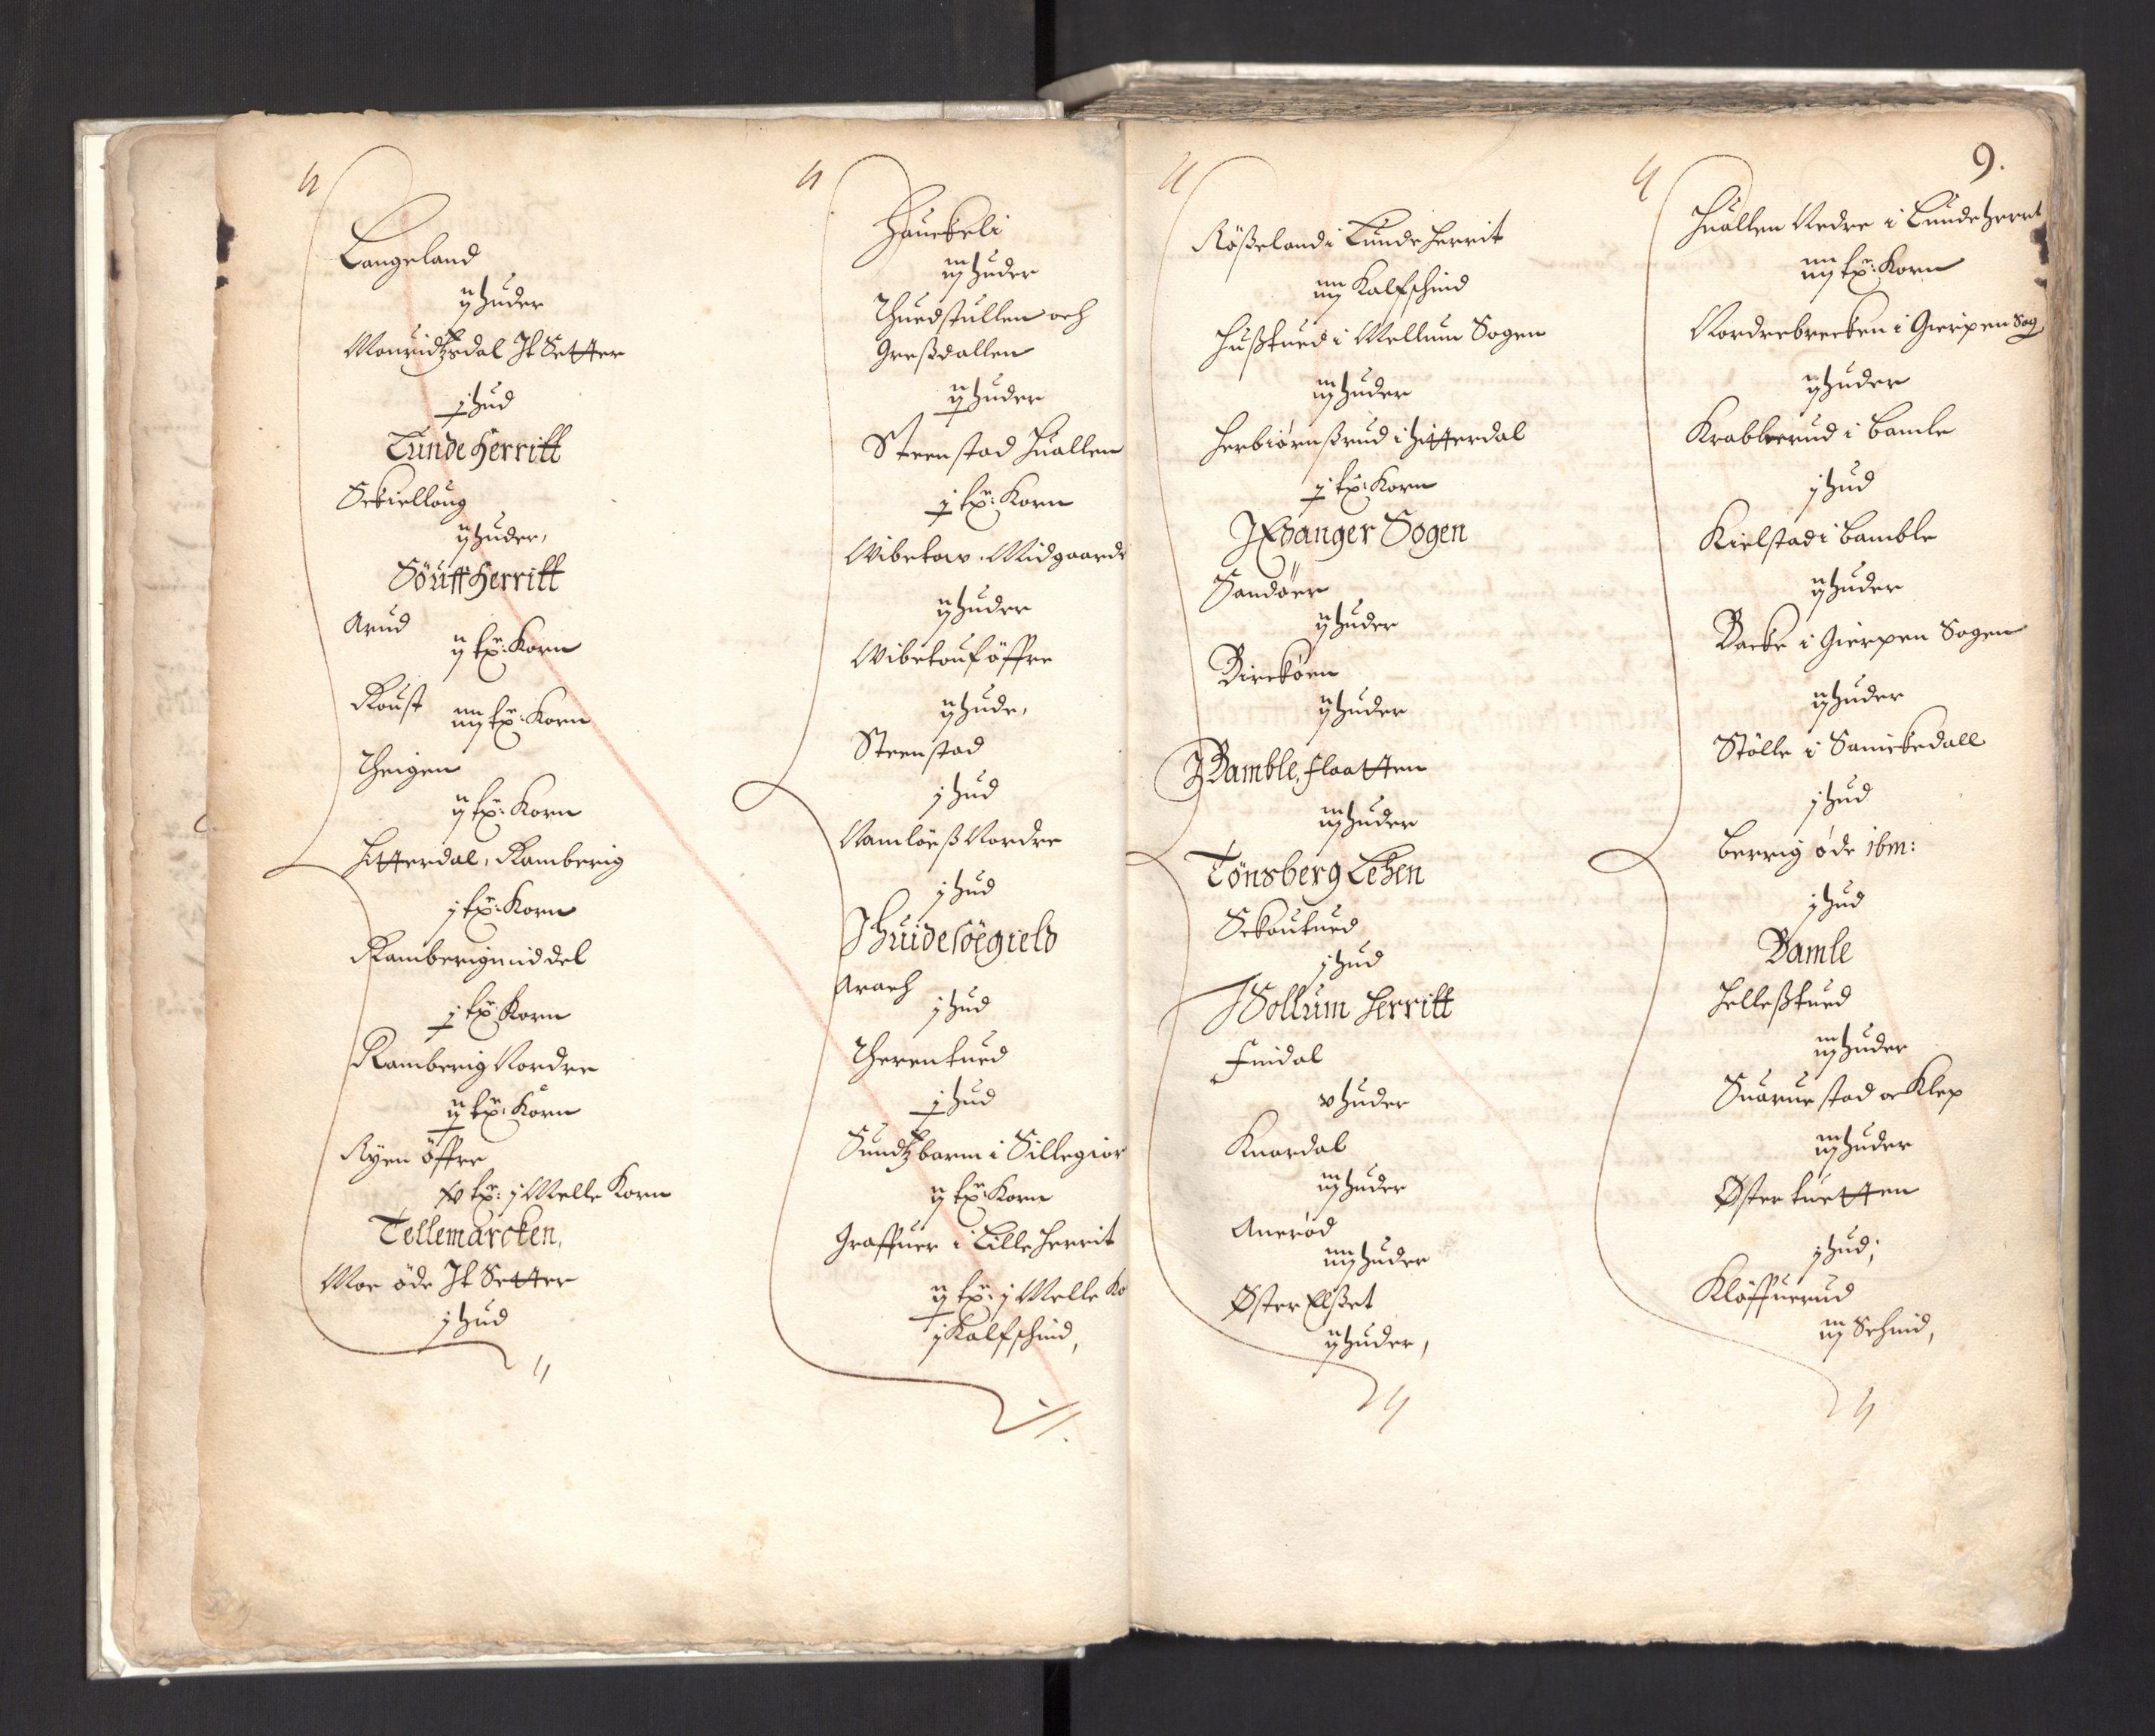 Langeland
ij huder
Mouridtzdal Jt Setter
j hud
Lunde Herritt
Sckielloug
ij huder,
Söuff Herritt
Arud
ij tx: Korn
Roust iiij tx: Korn
Theigen
ij tx: Korn
Hitterdal, Ramberig
j tx: Korn
Ramberig middel
j tx: Korn
Ramberig Nordre
ij tx: Korn
Ryen öffre
xv tx: j Melle Korn
Tellemarcken,
Moe öde Jt Setter
j hud
Hauckeli
iij huder
Thuedstullen och
Gressdallen
ij huder
Steenstad Huallen
j tx: Korn
Vibetow Midgaard
ij huder
Vibetouf öffre
ij hude,
Steenstad
j hud
Namlöess Nordre
j hud
J Huidesöegield
Arach
j hud
Therentued
j hud
Sundtzbarm i Sillegior
ij tx: Korn
Graffuer i Lille Herrit
ij tx: j Melle Ko
j Kalfschind,
9.
Rösseland i Lunde Herrit
iiij Kalfschind
Husstued i Mellum Sogen
iij huder
Herbiørnssrud i Hitterdal
j tx: Korn
J Evanger Sogen
Sandøer
ij huder
Birckøen
ij huder
J Bamble, Flaatten
iij huder
Tönsberg Lehen
Sckoutued
j hud
J Sollum Herritt
Findal
v huder
Knardal
iij huder
Anerød
iiij huder
Øster Elsset
ij huder,
Huallen Nedre i Lundeherrt
iiij tx: Korn
Nordrebrecken i Gierpen Sog
ij huder
Krabberud i Bamle
j hud
Kielstad i Bamble
ij huder
Backe i Gierpen Sogen
ij huder
Stölle i Sanickedall
j hud
Berrig øde ibm:
j hud
Bamle
Hellesstued
iij huder
Suarue stad oc Klep
iij huder
Østertuetten
j hud;
Klöffuerud
iij Schind,